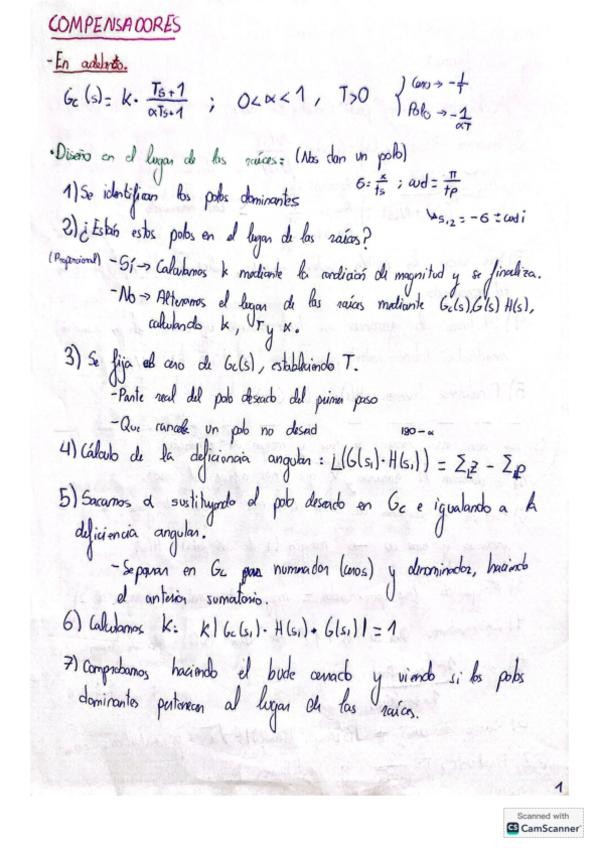 COMPENSADORES
- En adelanto.
Gc(s) = K · (Ts+1)/(αTs+1) ; 0<α<1 , T>0 { Cero → -1/T
Polo → -1/αT
· Diseño en el lugar de las raíces: (Nos dan un polo)
1) Se identifican los polos dominantes
σ = π/ts ; ωd = π/tp
↳ s1,2 = -σ ± ωd i
2) ¿Están estos polos en el lugar de las raíces?
(Proporcional) - Sí → Calculamos K mediante la condición de magnitud y se finaliza.
- No → Alteramos el lugar de las raíces mediante Gc(s)G(s)H(s),
calculando K, T y α.
3) Se fija el cero de Gc(s), estableciendo T.
- Parte real del polo deseado del primer paso
- Que cancele un polo no desead
180-α
4) Cálculo de la deficiencia angular: ∟(G(s1)·H(s1)) = Σz - Σp
5) Sacamos α sustituyendo el polo deseado en Gc e igualando a la
deficiencia angular.
- Separar en Gc numerador (ceros) y denominador, haciendo
el anterior sumatorio.
6) Calculamos K: K|Gc(s1)·H(s1)·G(s1)| = 1
7) Comprobamos haciendo el bucle cerrado y viendo si los polos
dominantes pertenecen al lugar de las raíces.
1
Scanned with
CS CamScanner